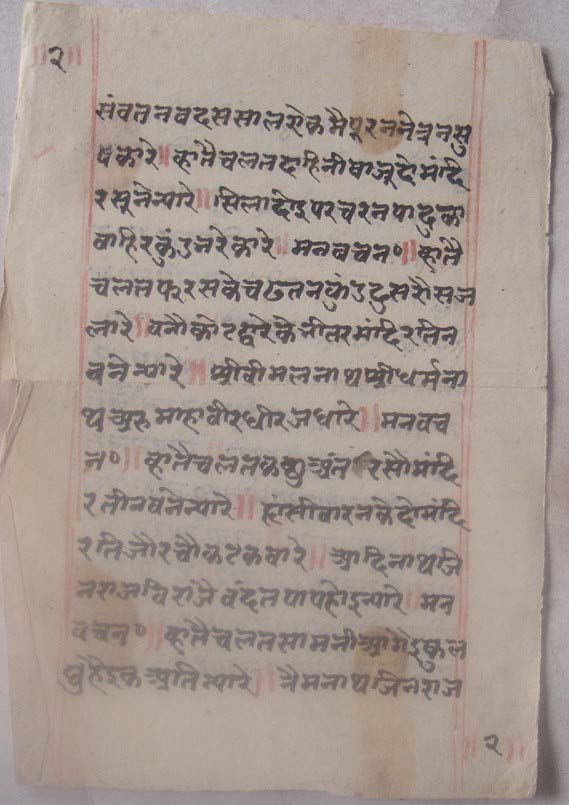 २
संवतनवदससालऐकमैपूरननेत्रनसु
षकारे ॥ ह्यातैचलतदाहिनीबाजूदोमंदि
रसूनेन्यारे ॥ सिलादोइपरचरनपादुका
बाहिरकुंडनरेकारे ॥ मनवचन॰ ॥ ह्यातै
चलतफरसकेचढतनकुंडदुसरौसज
लारे ॥ वनौकोटद्वारेकेभीतरमंदिरतिन
बनेन्यारे ॥ श्रीवीमलनाथश्रीधर्मना
थअरुमाहावीरधीरजधारे ॥ मनवच
न॰ ॥ ह्यातैचलतकछुअंतरसौमंदि
रतीनबनेन्यारे ॥ हांसीवारनकेदोमंदि
रतिऔरचौकटकवारे ॥ आदिनाथजि
नराजविराजैवंदतपापहोइन्यारे ॥ मन
वचन॰ ॥ ह्यातैचलतसामनीआगेइकुल
घुहैइकअतिन्यारे ॥ नैमनाथजिनराज
२